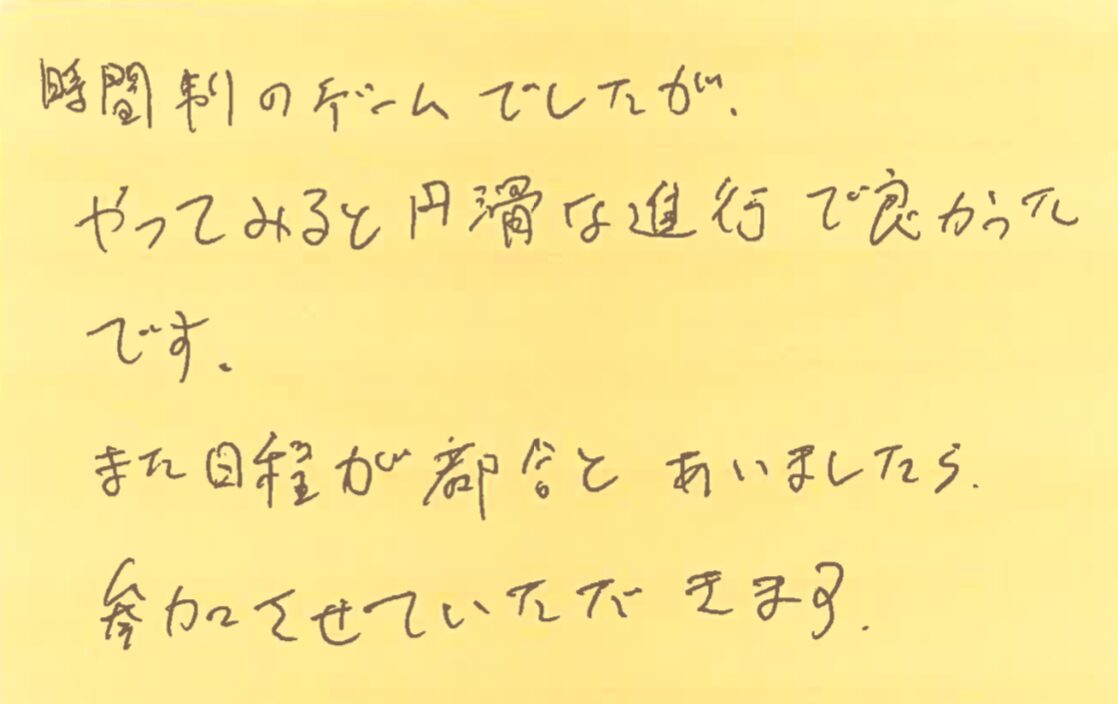 時間制のゲームでしたが、
やってみると円滑な進行で良かった
です。
また日程が都合とあいましたら、
参加させていただきます。